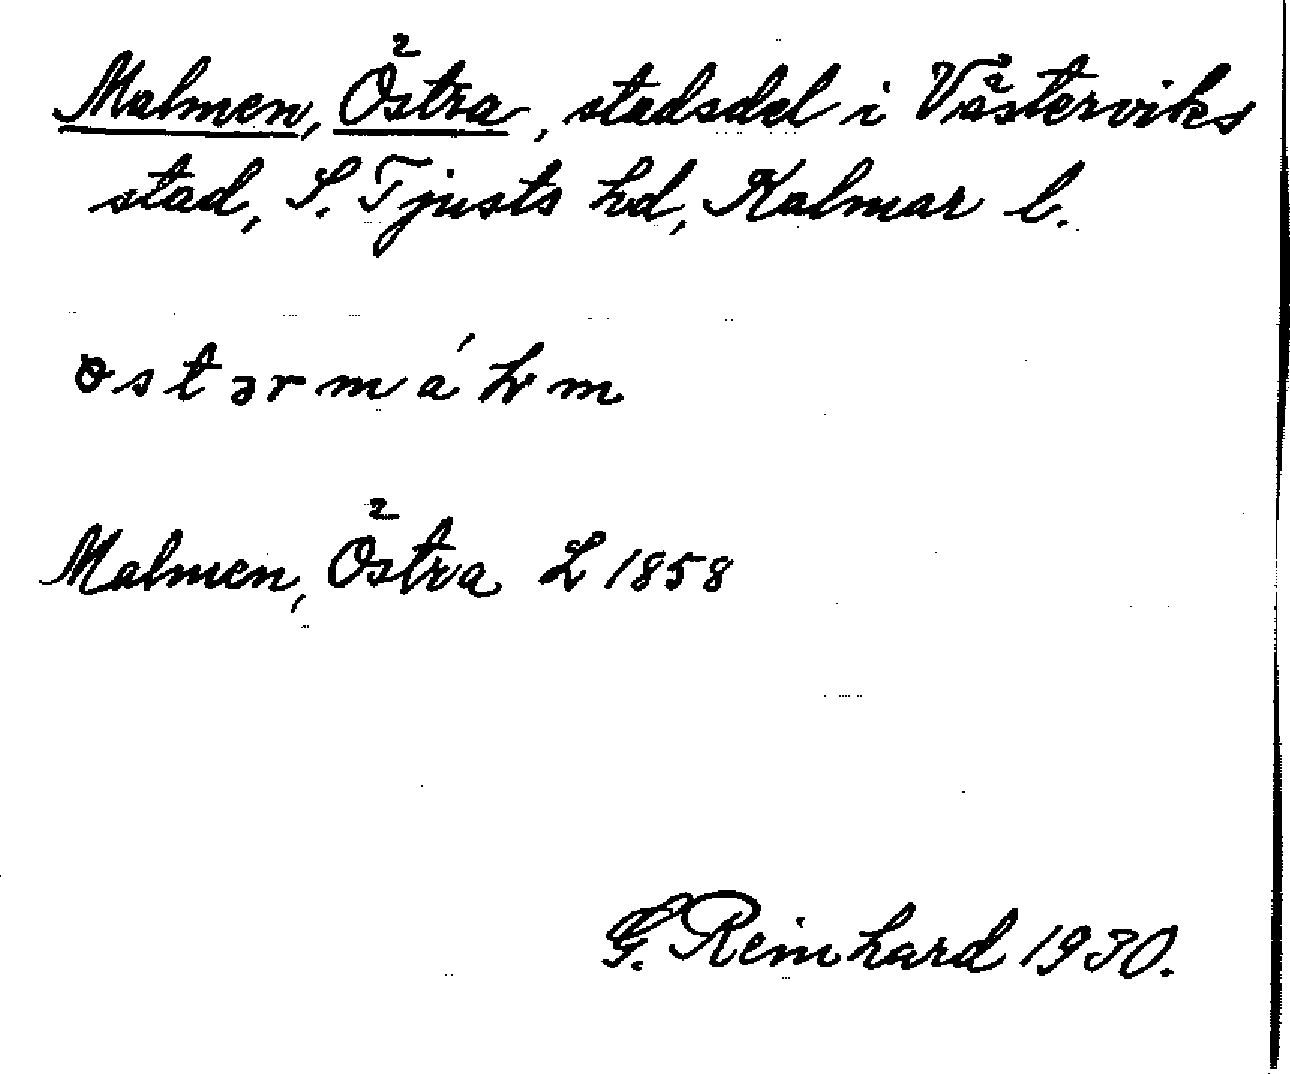 Malmen, Östra, stadsdel i Västerviks
stad, S. Tjusts hd, Kalmar l.
ɵstərmáլm
Malmen, Östra L 1858
G. Reinhard 1930.